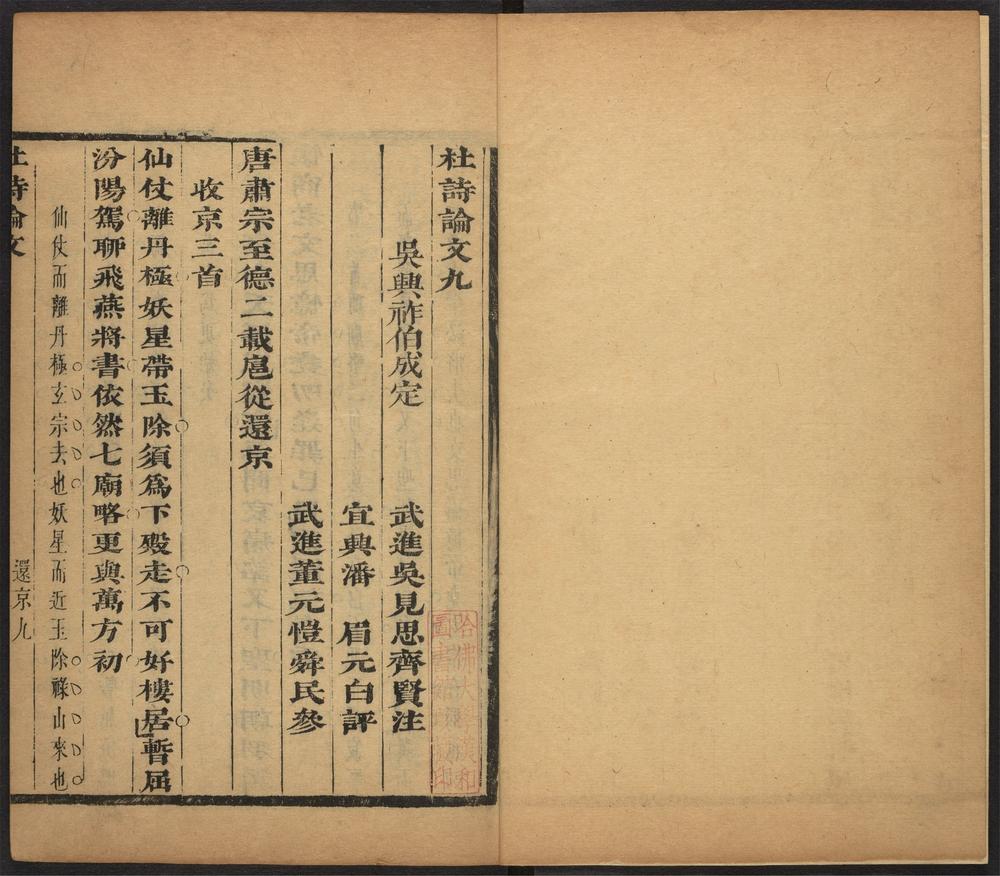 杜詩論文九
吳興祚伯成定
武進吳見思齊賢注
宜興潘 眉元白評
武進董元愷舜民參
唐肅宗至德二載扈從還京
收京三首
仙仗離丹極妖星帶玉除須為下殿走不可好樓居暫屈
汾陽駕聊飛燕將書依然七廟略更與萬方初
仙仗而離丹極玄宗去也妖星而近玉除祿山來也
杜詩論文
還京九
哈佛大學漢和
圖書館
印